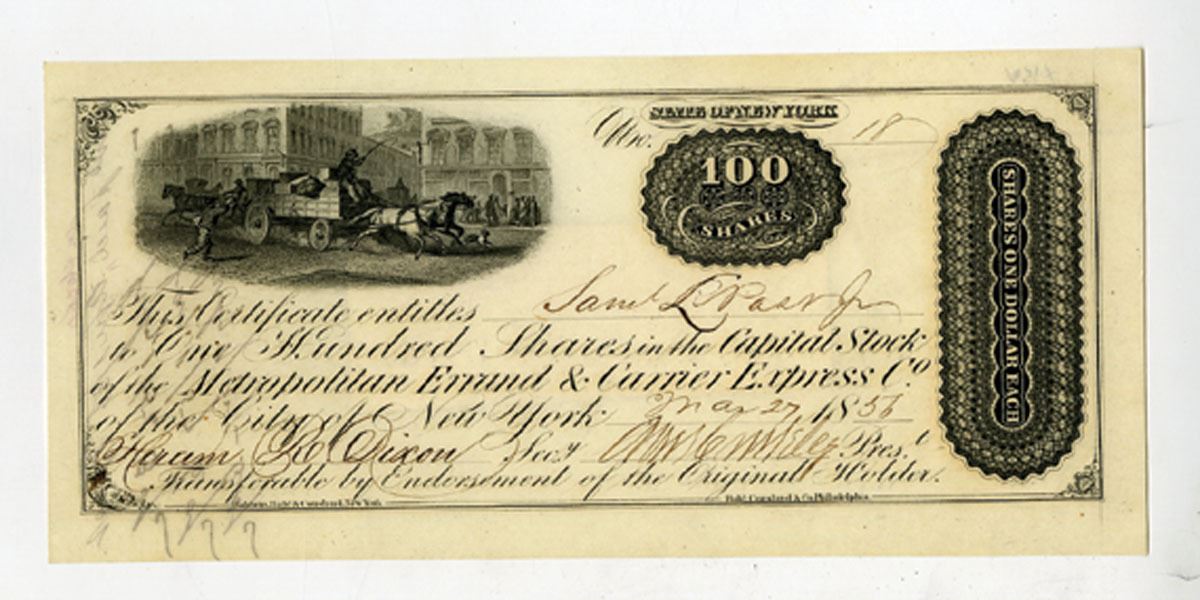 STATE OF NEW YORK
No. 18
100
SHARES
SHARES ONE DOLLAR EACH
This Certificate entitles Saml L Post Jr
to One Hundred Shares in the Capital Stock
of the Metropolitan Errand & Carrier Express Co.
of the City of New York Mar 27 1856
Hiram Dixon Secy Prest
Transferable by Endorsement of the Original Holder.